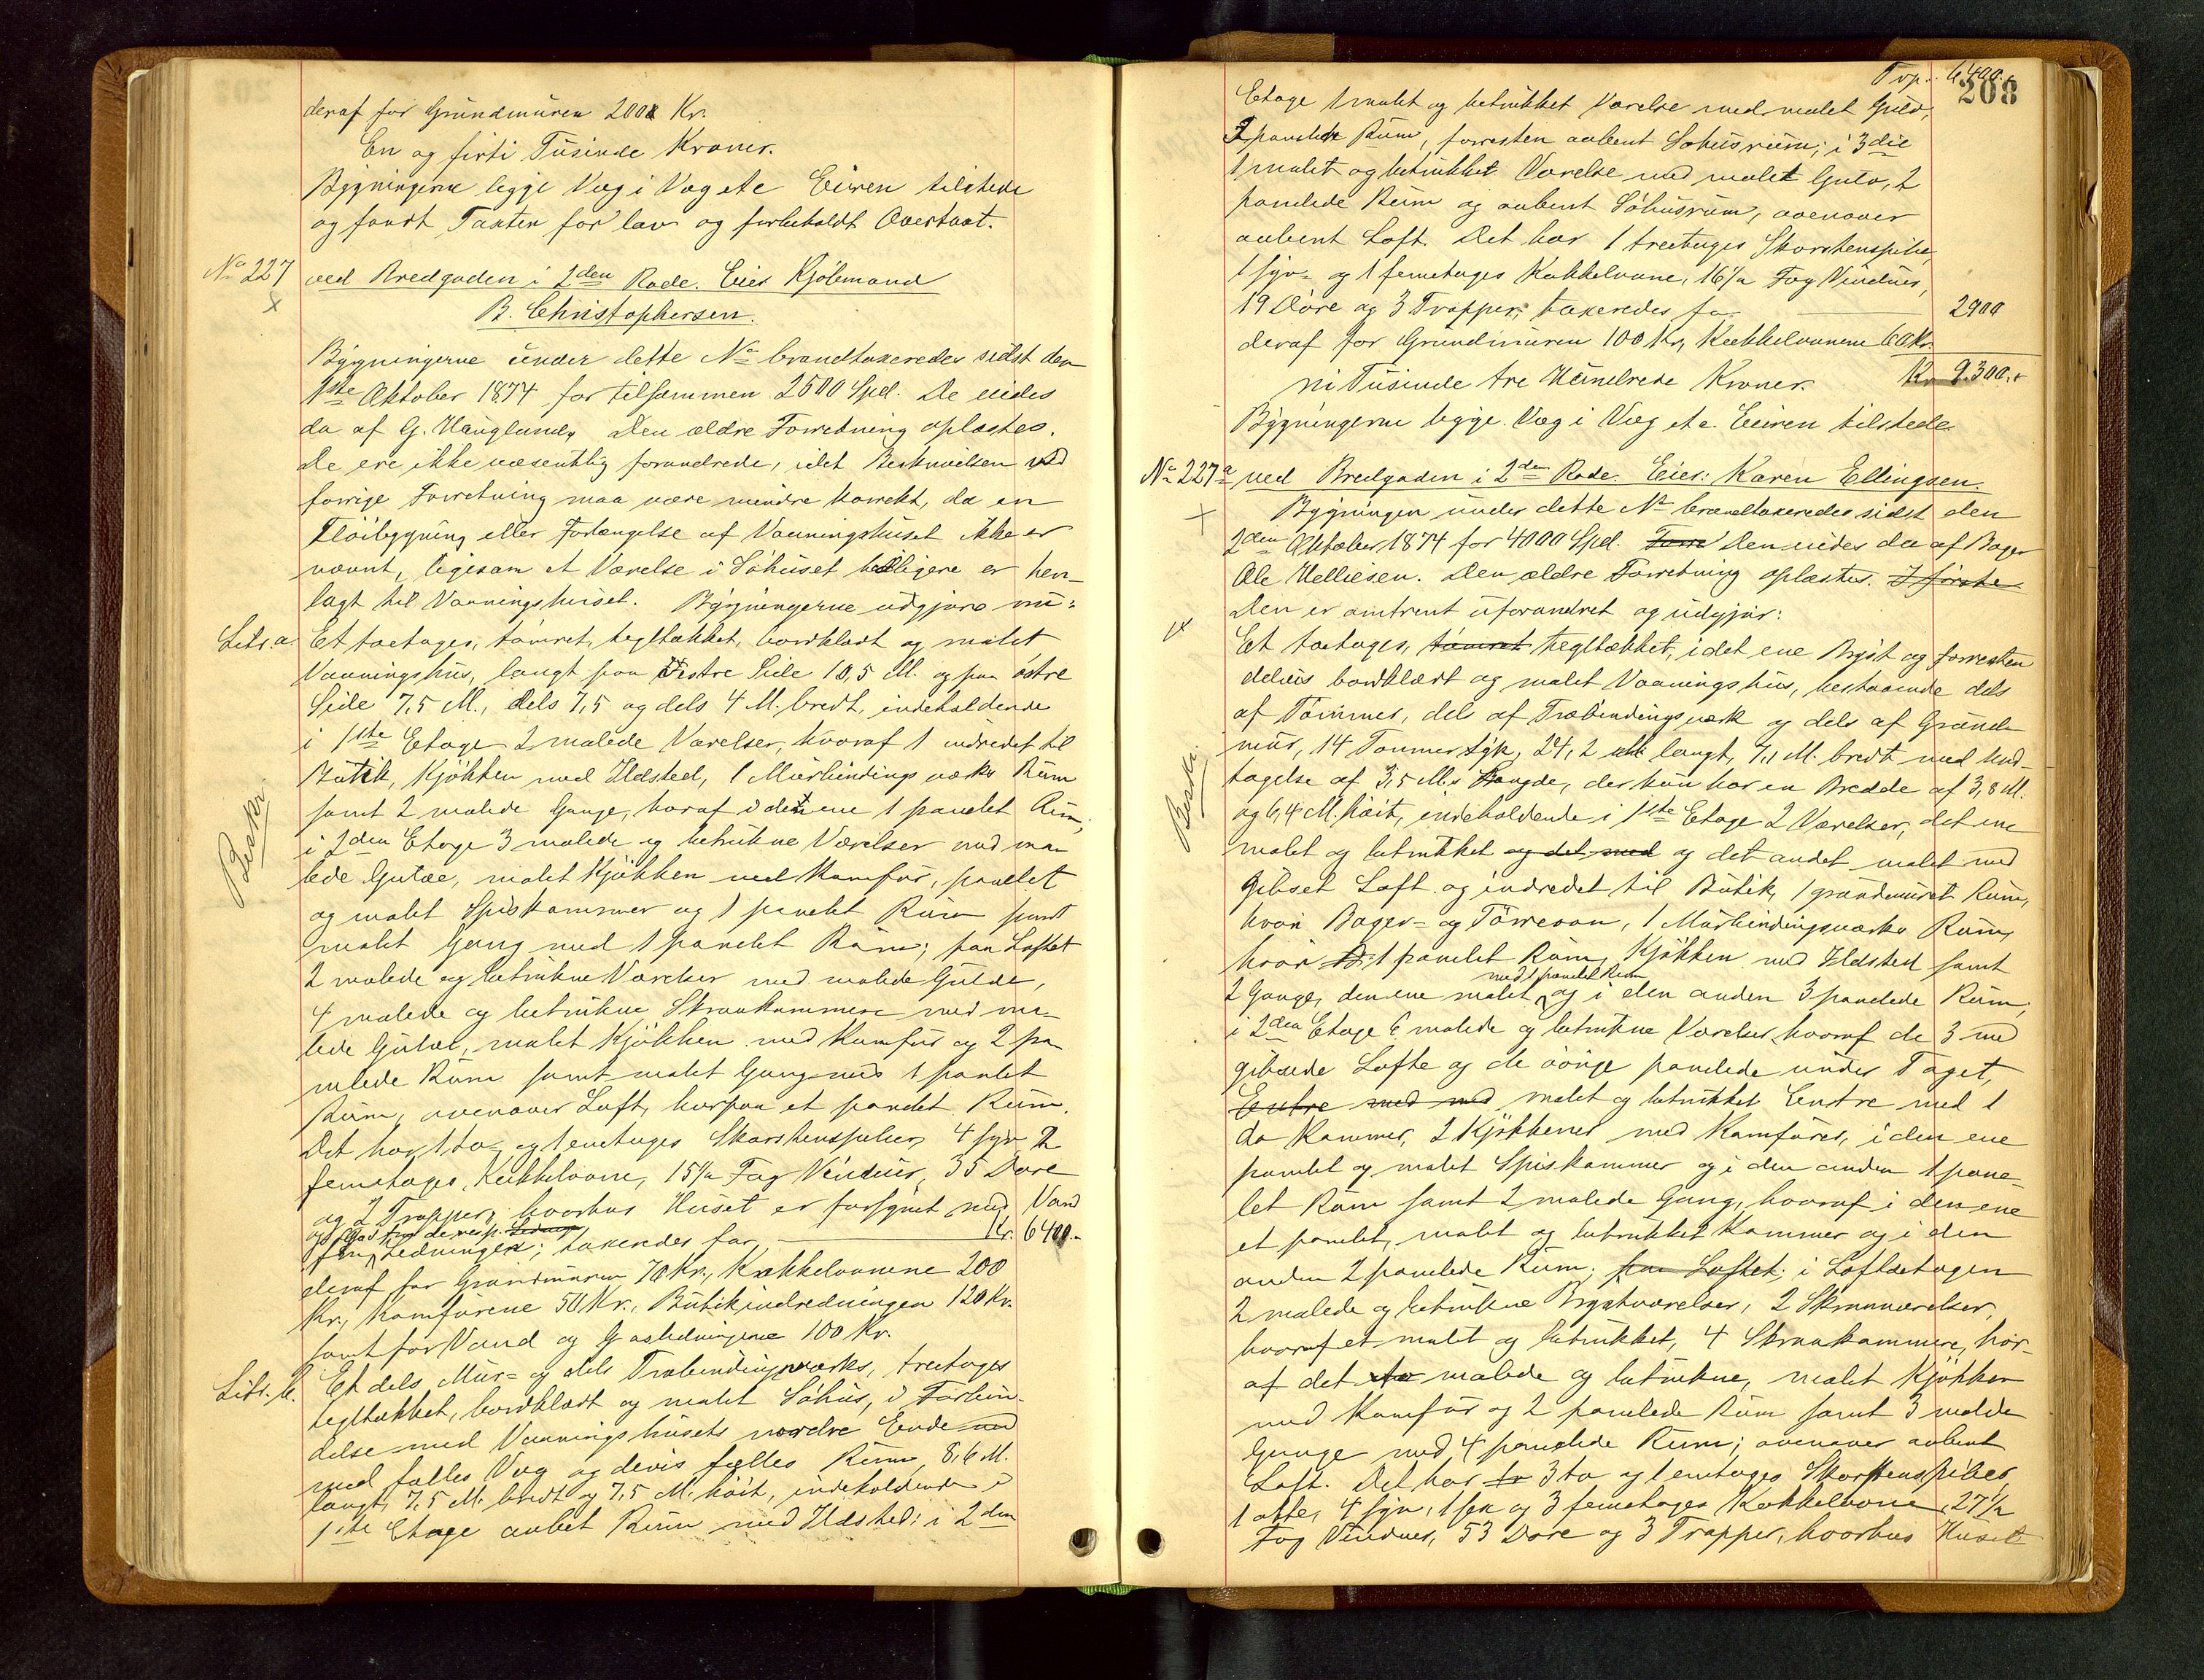 deraf for Grundmuren 2000 Kr.
En og firti Tusinde Kroner.
Bygningerne ligge Væg i Væg etc Eieren tilstede
og fandt Taxten for lav og forbeholdt Overtaxt.
No 227 ved Bredgaden i 2den Rode. Eier Kjöbmand
B. Christophersen.
Bygningerne under dette No brandtaxeredes sidst den
1ste Oktober 1874 for tilsammen 2500 Spd. De eiedes
da af G. Hauglund. Den ældre Forretning oplæstes.
De ere ikke væsentlig forandrede, idet Beskrivelsen ved
forrige Forretning maa være mindre korrekt, da en
Flöibygning eller Forlængelse af Vaaningshuset ikke er
nævnt, ligesom et Værelse i Söhuset tidligere er hen-
lagt til Vaaningshuset. Bygningerne udgjöre nu:
Litr. a. Et toetages, tömret, tegltækket, bordklædt og malet
Vaaningshus, langt paa Vestre Side 10,5 M. og paa östre
Side 7,5 M., dels 7,5 og dels 4 M. bredt, indeholdende
i 1ste Etage 2 malede Værelser, hvoraf 1 indredet til
Butik, Kjökken med Ildsted, 1 Murbindingsværks Rum
samt 2 malede Gange, hvoraf i den ene 1 panelet Rum,
i 2den Etage 3 malede og betrukne Værelser med ma-
lede Gulve, malet Kjökken med Komfur, panelet
og malet Spiskammer og 1 panelet Rum samt
malet Gang med 1 panelet Rum; paa Loftet
2 malede og betrukne Værelser med malede Gulve,
4 malede og betrukne Skraakammere med ma-
lede Gulve, malet Kjökken med Komfur og 2 pa-
nelede Rum samt malet Gang med 1 panlet
Rum, ovenover Loft, hvorpaa et panelet Rum.
Det har 1 to- og 1 enetages Skorstenspiber, 4 syv 2
femetages Kakkelovne, 15 1/2 Fag Vinduer, 35 Döre
og 2 Trapper, hvorhos Huset er forsynet med Vand
og Gas fra de resp.
Ledninger; taxeredes for Kr. 6400.-
deraf for Grundmuren 70 Kr., Kakkelovnene 200
Kr., Komfurene 50 Kr., Butikindredningen 120 Kr.
samt for Vand og Gasledningerne 100 Kr.
Litr. b. Et dels Mur- og dels Træbindingsværks, treetages
tegltækket, bordklædt og malet Söhus, i Forbin-
delse med Vaaningshusets nordre Ende
med fælles Væg og delvis fælles Rum, 8,6 M.
langt, 7,5 M. bredt og 7,5 M. höit, indeholdende i
1ste Etage aabet Rum med Ildsted; i 2den
Beskr.
208
Trp. 6400.
Etage 1 malet og betrukket Værelse med malet Gulv,
2 panelede Rum, forresten aabent Söhusrum; i 3die
1 malet og betrukket Værelse med malet Gulv, 2
panelede Rum og aabent Söhusrum, ovenover
aabent Loft. Det har 1 treetages Skorstenspibe,
1 syv- og 1 femetages Kakkelovne, 16 1/2 Fag Vinduer,
19 Döre og 3 Trapper; taxeredes for 2900
deraf for Grundmuren 100 Kr, Kakkelovnene 60 Kr.
ni Tusinde tre Hundrede Kroner. Kr 9.300.-
Bygningerne ligge Væg i Væg etc. Eieren tilstede
No 227a ved Bredgaden i 2den Rode. Eier: Karen Ellingsen.
Bygningen under dette No brandtaxeredes sidst den
2den Oktober 1874 for 4000 Spd. Den eiedes da af Bager
Ole Helliesen. Den ældre Forretning oplæstes. I første
Den er omtrent uforandret og udgjör:
Et toetages, tömret tegltækket, i det ene Bryst og forresten
delvis bordklædt og malet Vaaningshus, bestaaende dels
af Tömmer, dels af Træbindingsværk og dels af Grund-
mur, 14 Tommer tyk, 24,2 M. langt, 7,1 M. bredt med Und-
tagelse af 3,5 M.s Længde, der kun har en Bredde af 3,8 M.
og 6,4 M. höit, indeholdende i 1ste Etage 2 Værelser, det ene
malet og betrukket og det med og det andet malet med
gibset Loft og indredet til Butik, 1 grundmuret Rum,
hvori Bager- og Törreovn, 1 Murbindingsværks Rum,
hvori 1 panelet Rum, Kjökken med Ildsted samt
med 1 panelet Rum
2 Gange, den ene malet og i den anden 3 panelede Rum,
i 2den Etage 6 malede og betrukne Værelser, hvoraf de 3 med
gibsede Lofte og de övrige panelede under Taget,
Entre med med malet og betrukket Entre med 1
do Kammer, 2 Kjökkener med Komfurer, i den ene
panelet og malet Spiskammer og i den anden 1 pane-
let Rum samt 2 malede Gang, hvoraf i den ene
et panelet, malet og betrukket Kammer og i den
anden 2 panelede Rum; paa Loftet; i Loftsetagen
2 malede og betrukne Brystværelser, 2 Skraaværelser,
hvoraf et malet og betrukket, 4 Skraakammere, hvor-
af det malede og betrukne, malet Kjökken
med Komfur og 2 panelede Rum samt 3 malede
Gange med 4 panelede Rum; ovenover aabent
Loft. Det har 3 to og 1 enetages Skorstenspiber,
1 otte, 4 syv, 1 sex og 3 femetages Kakkelovne, 27 1/2
Fag Vinduer, 53 Döre og 3 Trapper, hvorhos Huset
Beskr.